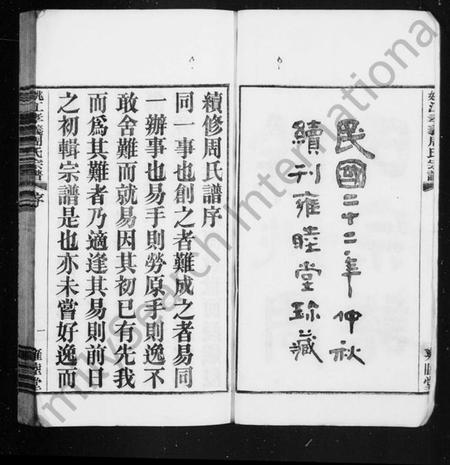 民國二十二年仲秋
續刊雍睦堂珍藏
姚江孝義周氏宗譜
雍睦堂
續修周氏譜序
同一事也創之者難成之者易同
一辦事也易手則勞原手則逸不
敢舍難而就易因其初已有先我
而為其難者乃適逢其易則前日
之初輯宗譜是也亦未嘗好逸而
姚江孝義周氏宗譜
序
一
雍睦堂
FamilySearch International